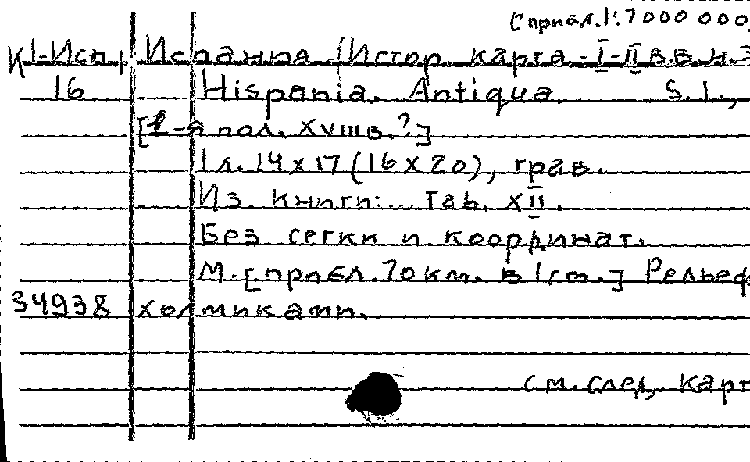 [прибл. 1:7000 000]
К1-Исп Испания (Истор. карта - I-II в.в. н.э
16 Hispania Antiqua S.l.,
[1-я пол. XVIII в.?]
1 л. 14 x 17 (16 x 20), грав.
Из книги: Tab. XII.
Без сетки и координат.
М. [прибл. 70 км. в 1 см.] Рельеф
34938 холмиками.
см. след. карт